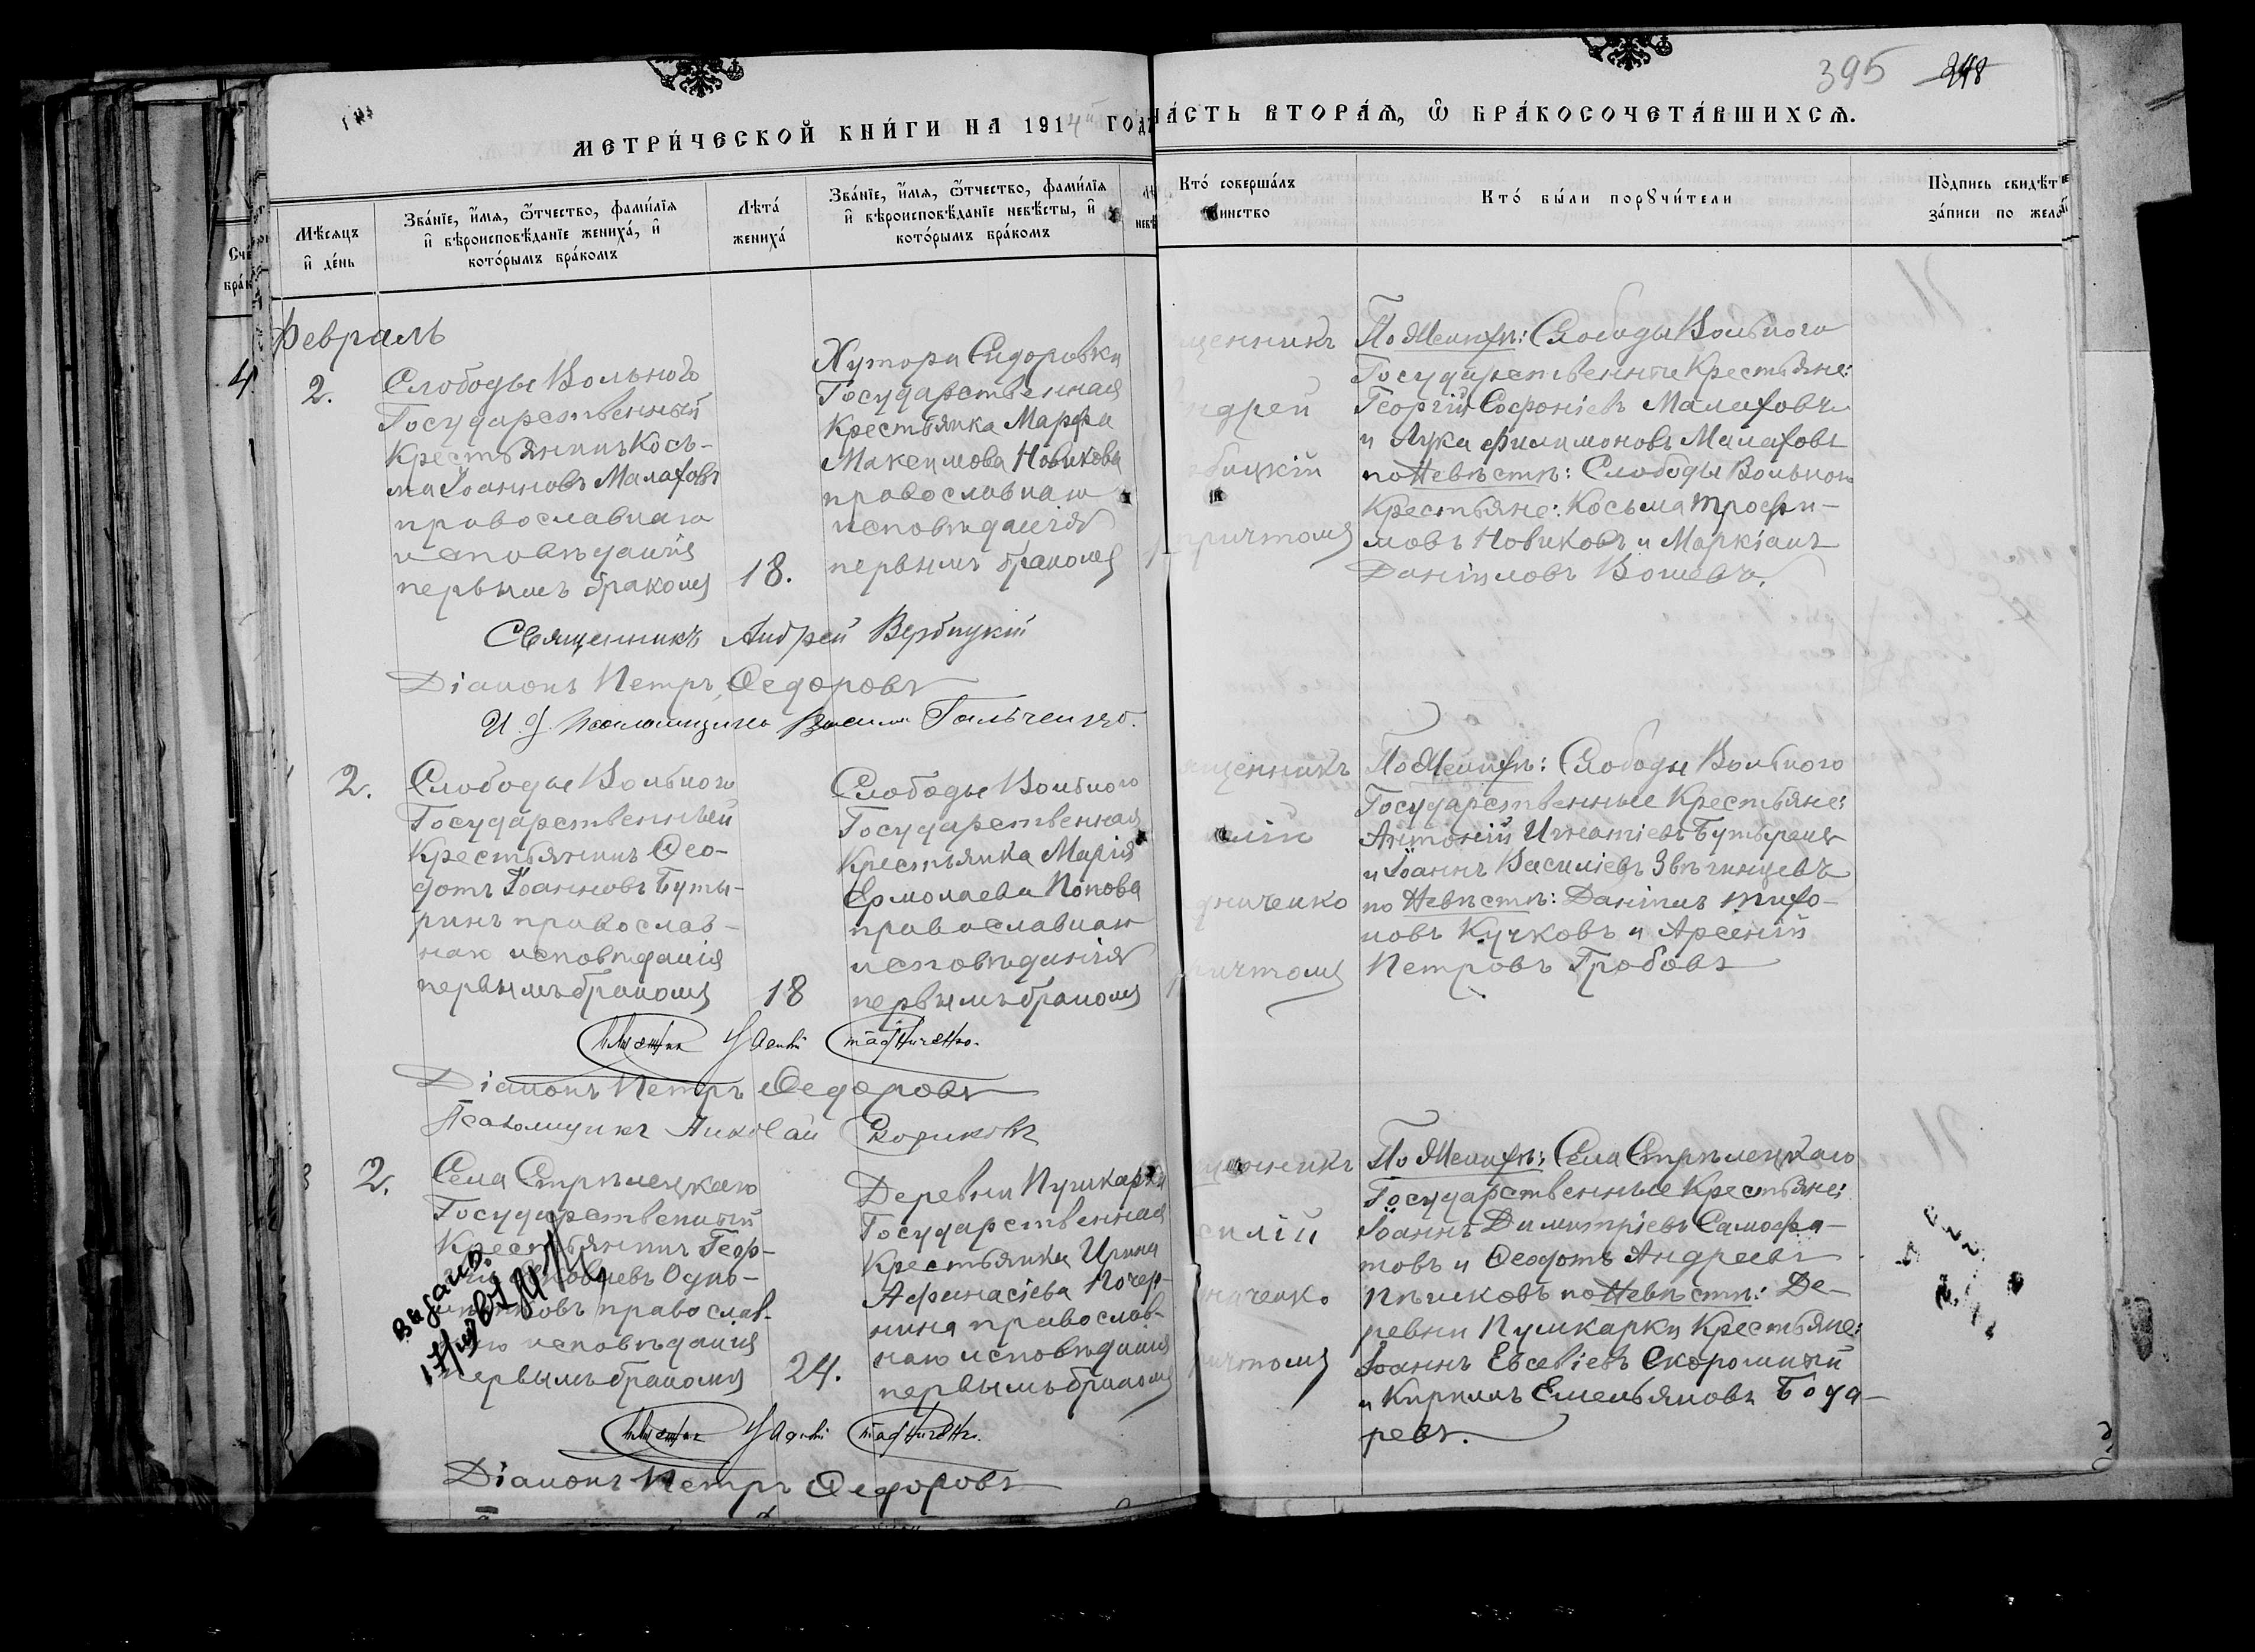 395 248
МЕТРИ́ЧЕСКОЙ КНИ́ГИ НА 1914й ГОДЪ
ЧА́СТЬ ВТОРА́Ѧ, Ѿ БРАКОСОЧЕТА́ВШИХСѦ.
Мѣсяцъ
и҆ де́нь
Зва́нїе, и҆́мѧ, ѻ҆́тчество, фами́лїѧ
и҆ вѣроисповѣ́данїе жениха́, и҆
кото́рымъ бра́комъ
Лѣта́
жениха́
Зва́нїе, и҆́мѧ, ѻ҆́тчество, фами́лїѧ
и҆ вѣроисповѣ́данїе невѣ́сты, и҆
кото́рымъ бра́комъ
Кто̀ соверша́лъ
Кто̀ бы́ли порꙋчи́тели
По́дпись свидѣт
за́писи по жела
Февраль
4.
2.
Слободы Вольнаго
Государственный
Крестьянинъ Кось-
ма Іоанновъ Малаховъ
православнаго
исповѣданія
первымъ бракомъ
18.
Хутора Сидоровки
Государственная
Крестьянка Марфа
Максимова Новикова
православнаго
исповѣданія
первымъ бракомъ
щенникъ
ндрей
бицкій
причтомъ
По Женихѣ: Слободы Вольнаго
Государственные Крестьяне:
Георгій Софоніевъ Малаховъ
и Лука Филимоновъ Малаховъ
по Невѣстѣ: Слободы Вольнаго
Крестьяне: Косьма Трофи-
мовъ Новиковъ и Маркіанъ
Даніиловъ
Священникъ Андрей Вербицкій
Діаконъ Петръ Ѳедоровъ
И. д. Псаломщика Василий Гальченко.
2.
Слободы Вольнаго
Государственный
Крестьянинъ Ѳео-
дотъ Іоанновъ Буты-
ринъ православ-
наго исповѣданія
первымъ бракомъ
18
Слободы Вольнаго
Государственная
Крестьянка Марія
Ермолаева Попова
православнаго
исповѣданія
первымъ бракомъ
ященникъ
силій
дниченко
ричтомъ
По Женихѣ: Слободы Вольнаго
Государственные Крестьяне:
Антоній Игнатіевъ Бутыринъ
и Іоаннъ Василіевъ Звѣгинцевъ
по Невѣстѣ: Даніилъ Тихо-
новъ Кучковъ и Арсеній
Петровъ Гробовъ
Діаконъ Петръ Ѳедоровъ
Псаломщикъ Николай
2.
Села Стрѣлецкаго
Государственный
Крестьянинъ Геор-
Выдано.
православ-
исповѣданія
первымъ бракомъ
24.
Деревни Пушкарки
Государственная
Крестьянка Ирина
Афанасіева Почер-
нина православ-
наго исповѣданія
первымъ бракомъ
щенникъ
силій
ниченко
ричтомъ
По Женихѣ: Села Стрѣлецкаго
Государственные Крестьяне:
Іоаннъ Димитріевъ Самофа-
товъ и Ѳеодотъ Андреевъ
Пѣшковъ по Невѣстѣ: Де-
ревни Пушкарки Крестьяне:
Іоаннъ Евсевіевъ Скоромный
и Кириллъ Емельяновъ Бода-
ревъ.
Діаконъ Петръ Ѳедоровъ